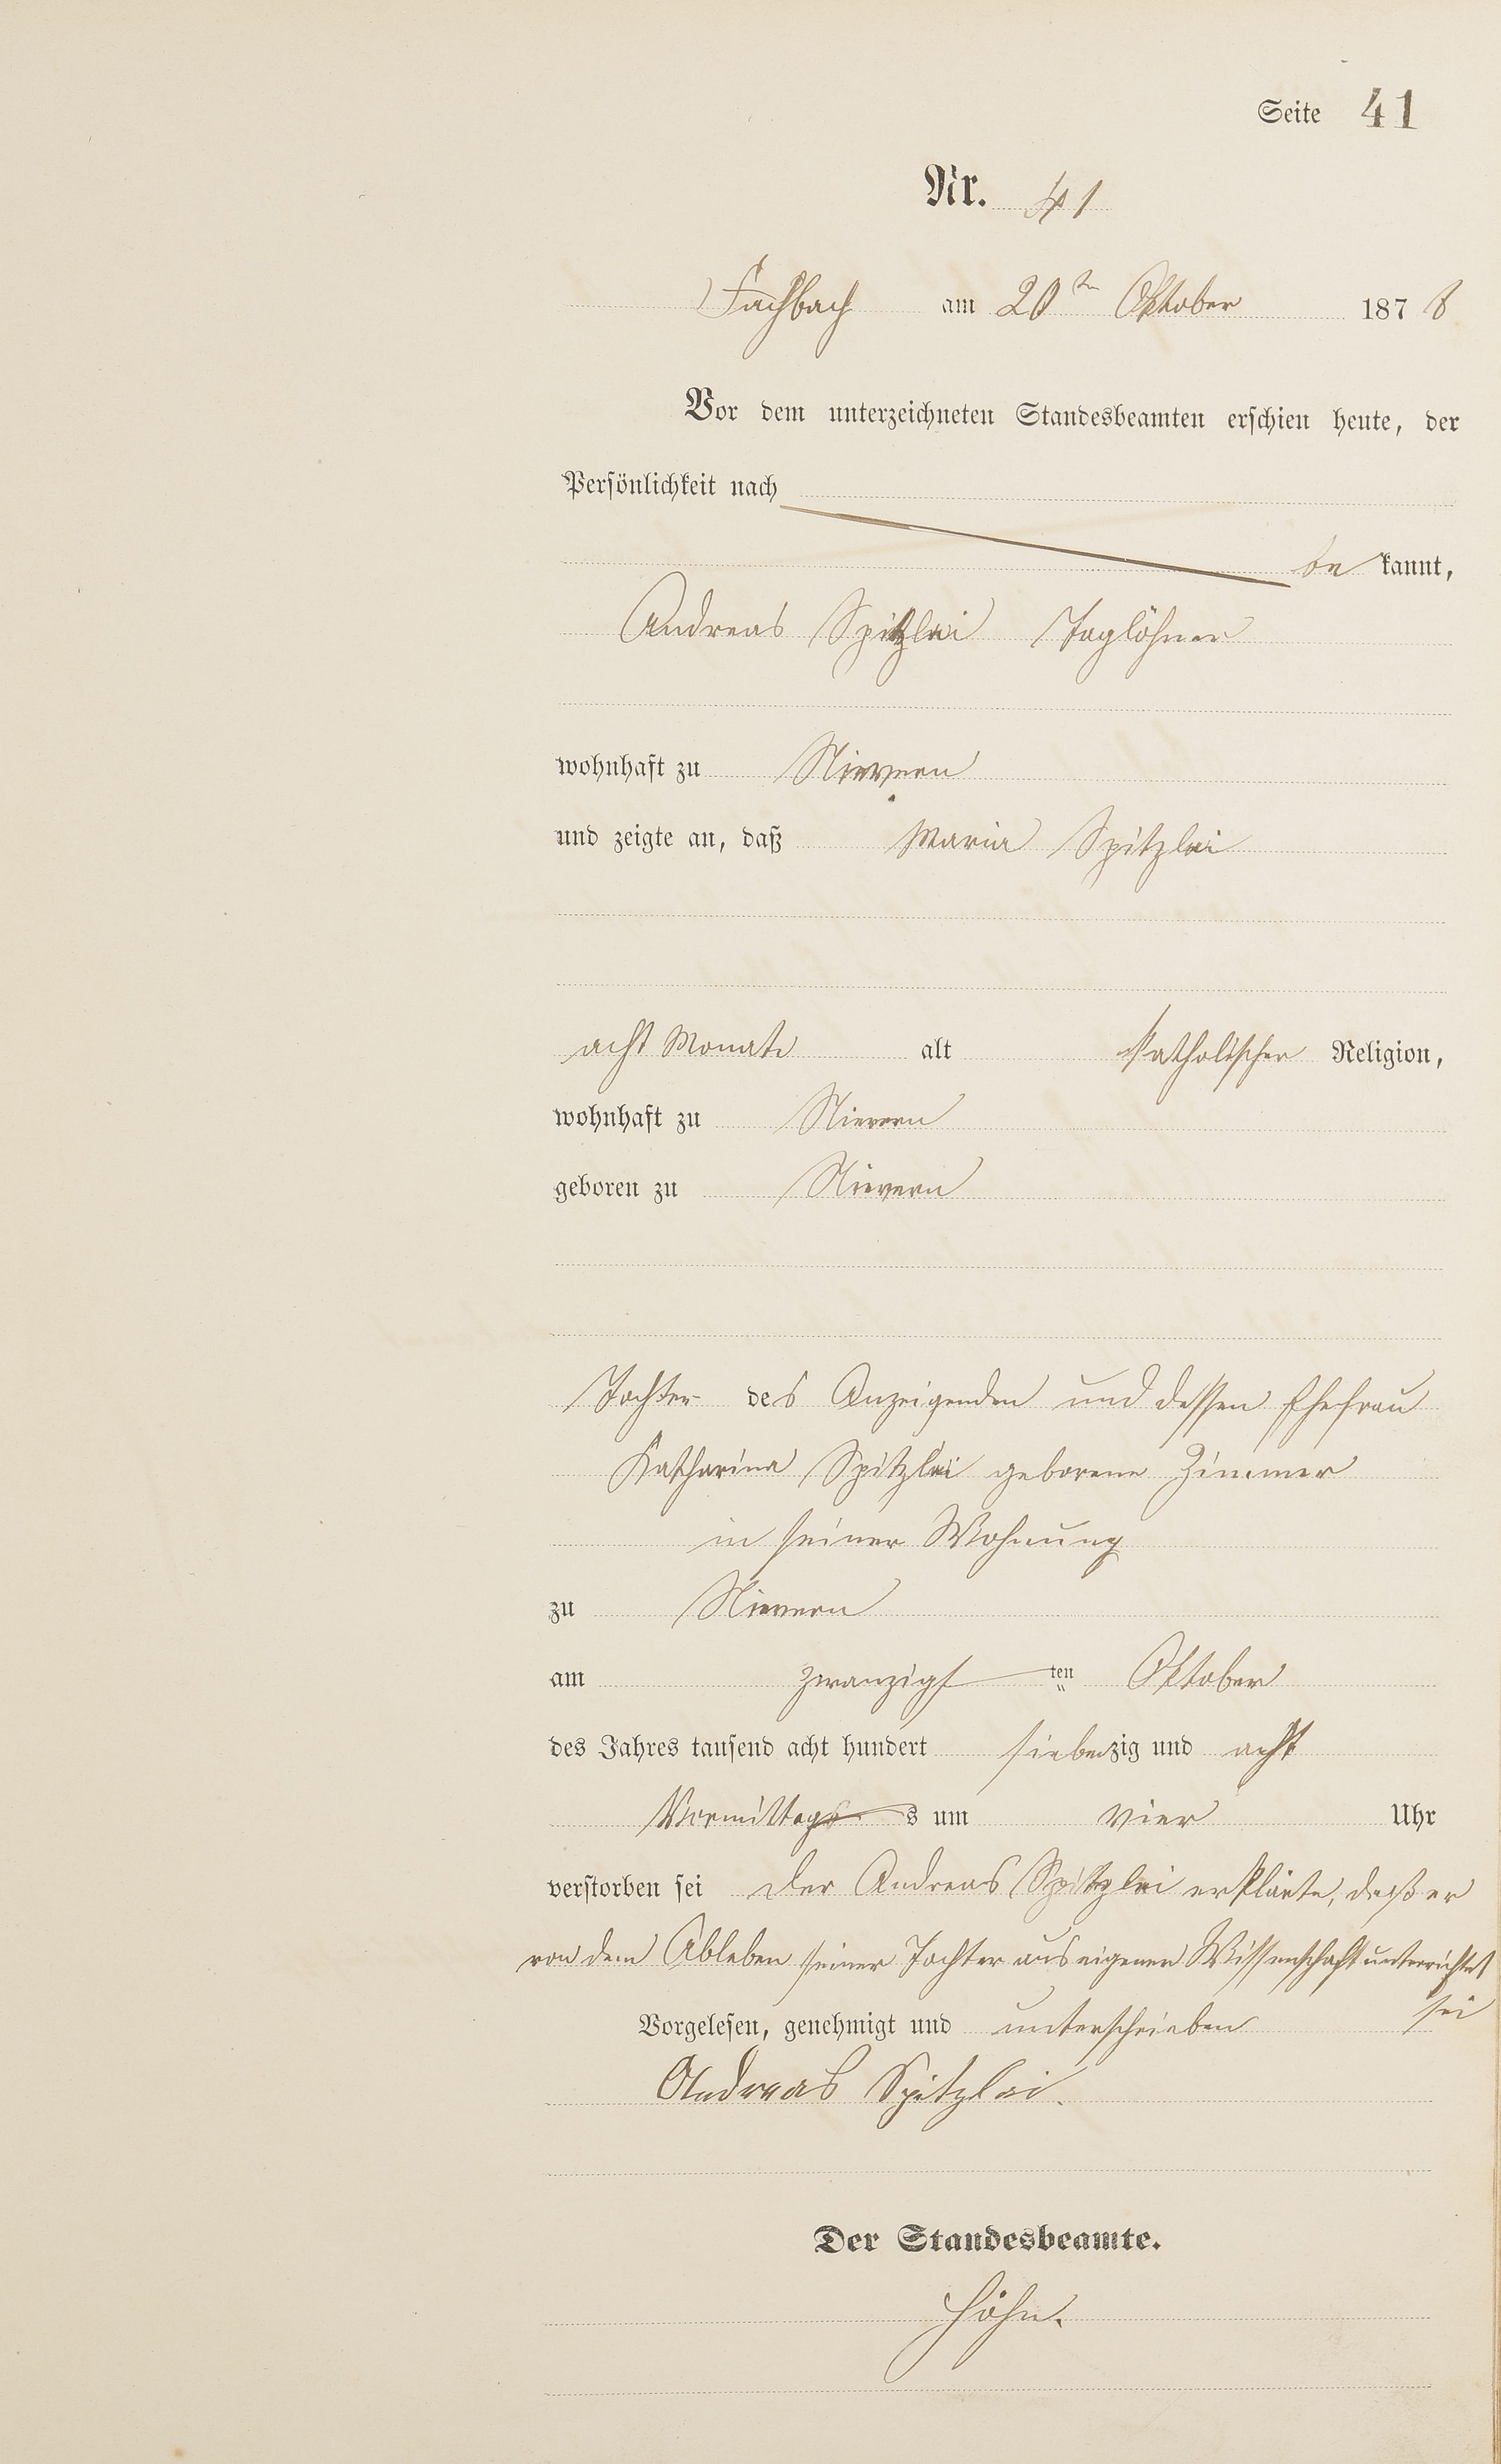 Seite 41
Nr. 41
Fachbach am 20ten Oktober 1878
Vor dem unterzeichneten Standesbeamten erschien heute, der
Persönlichkeit nach
be kannt,
Andreas Spitzlei Taglöhner
wohnhaft zu Nievern
und zeigte an, daß Maria Spitzlei
acht Monate alt katholischer Religion,
wohnhaft zu Nievern
geboren zu Nievern
Tochter des Anzeigenden und dessen Ehefrau
Katharina Spitzlei geborene Zimmer
in seiner Wohnung
zu Nievern
am zwanzigsten Oktober
des Jahres tausend acht hundert siebenzig und acht
Vormittags um vier Uhr
verstorben sei der Andreas Spitzlei erklärte, daß er
von dem Ableben seiner Tochter aus eigener Wissenschaft unterrichtet
sei
Vorgelesen, genehmigt und unterschrieben
Andreas Spitzlei.
Der Standesbeamte.
Höhn.